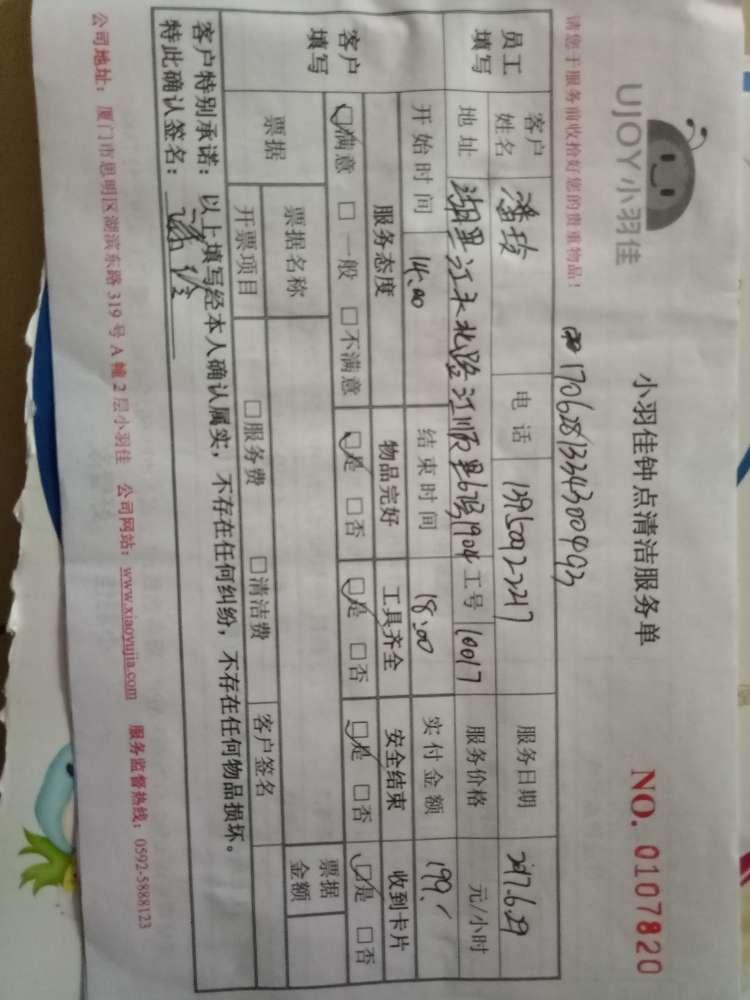 UJOY小羽佳
小羽佳钟点清洁服务单
NO. 0107820
请您于服务前收拾好您的贵重物品！
170628133430049
员工填写 客户姓名 电话 服务日期 2017.6.29
地址 湖里江头北路江顺里67号1904 工号 10017 服务价格 元/小时
开始时间 14:00 结束时间 18:00 实付金额 199.
客户填写 服务态度 物品完好 工具齐全 安全结束 收到卡片
☑满意 □一般 □不满意 ☑是 □否 ☑是 □否 ☑是 □否 ☑是 □否
票据 票据名称 票据金额
开票项目 □服务费 □清洁费 客户签名
客户特别承诺：以上填写经本人确认属实，不存在任何纠纷，不存在任何物品损坏。
特此确认签名：
公司地址：厦门市思明区湖滨东路319号A幢2层小羽佳 公司网站：www.xiaoyujia.com 服务监督热线：0592-5888123